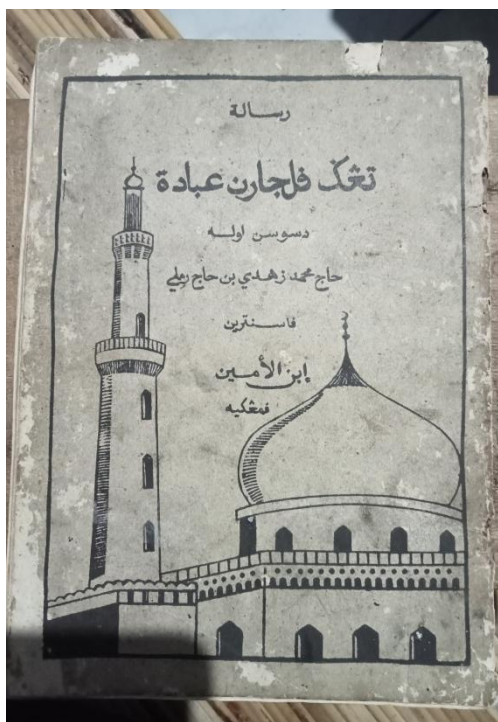 رسالة
تڠک فلجارن عبادة
دسوسن اوله
حاج محمد زهدي بن حاج رملي
فاسنترين
إبن الأمين
فمڠکيه